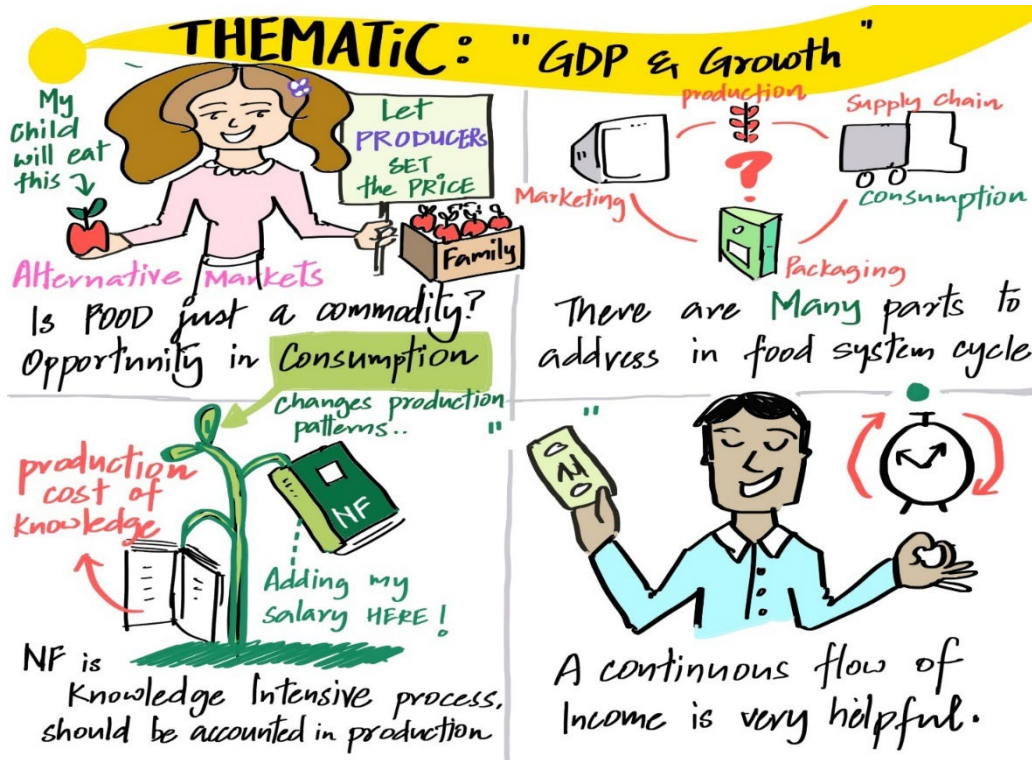 THEMATIC: "GDP & Growth"
My
Child
will eat
this
Let
PRODUCERS
SET
the PRICE
Family
Alternative Markets
Is FOOD just a commodity?
Opportunity in Consumption
production
Supply Chain
Marketing
?
Consumption
Packaging
There are Many parts to
address in food system cycle
changes production
patterns..
production
cost of
Knowledge
NF
Adding my
salary HERE!
NF is
Knowledge Intensive process,
should be accounted in production
" "
A continuous flow of
Income is very helpful.